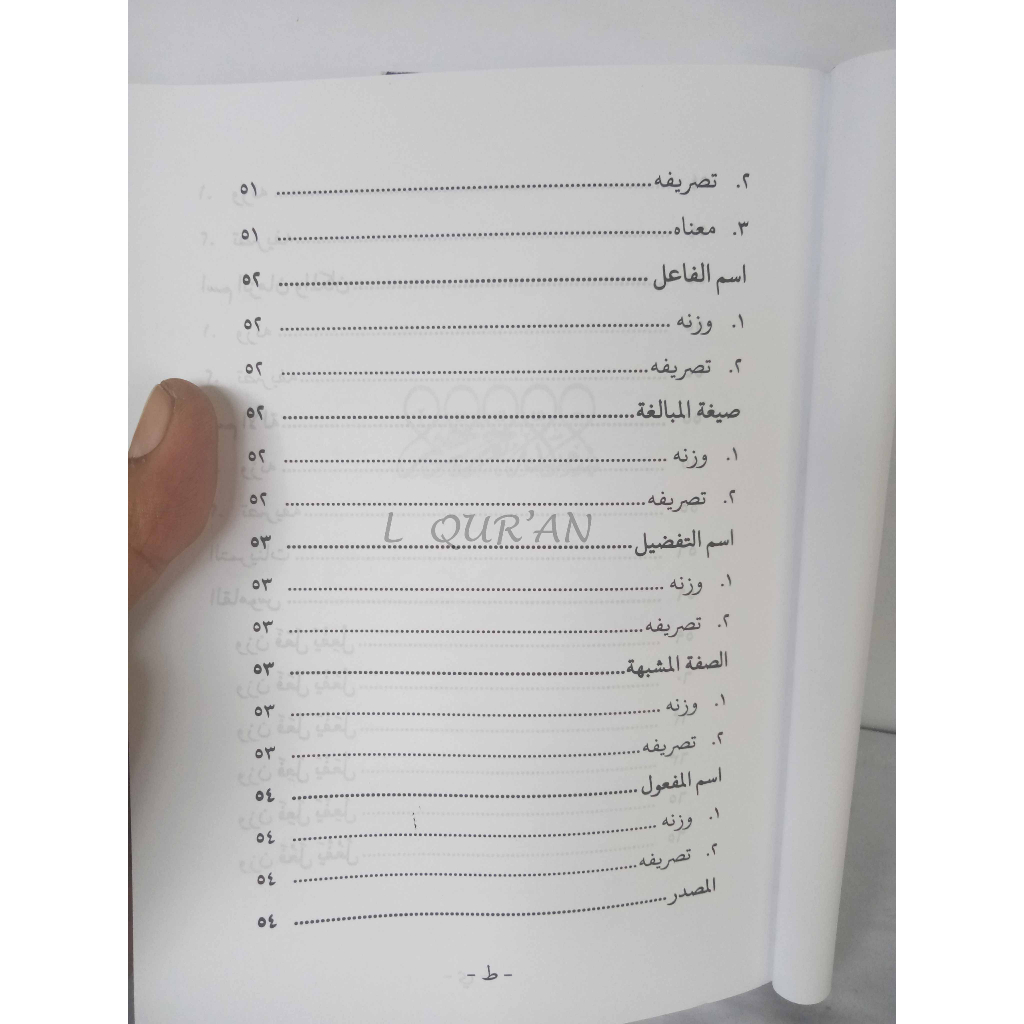 ٢. تصريفه ........ ٥١
٣. معناه ........ ٥١
اسم الفاعل ........ ٥٢
١. وزنه ........ ٥٢
٢. تصريفه ........ ٥٢
صيغة المبالغة ........ ٥٢
١. وزنه ........ ٥٢
٢. تصريفه ........ ٥٢
L QUR'AN
اسم التفضيل ........ ٥٣
١. وزنه ........ ٥٣
٢. تصريفه ........ ٥٣
الصفة المشبهة ........ ٥٣
١. وزنه ........ ٥٣
٢. تصريفه ........ ٥٣
اسم المفعول ........ ٥٤
١. وزنه ........ ٥٤
٢. تصريفه ........ ٥٤
المصدر ........ ٥٤
- ط -